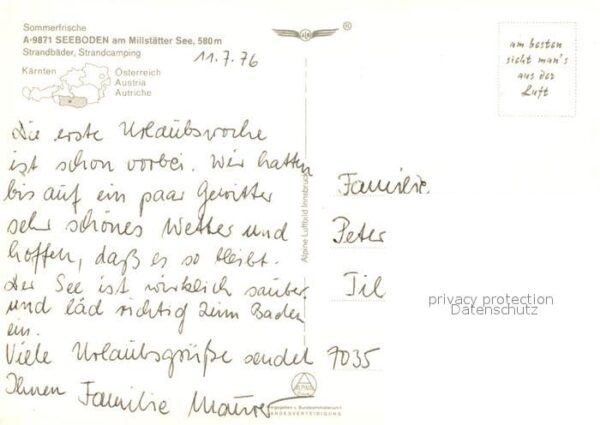 Sommerfrische
A-9871 SEEBODEN am Millstätter See, 580 m
Strandbäder, Strandcamping
11.7.76
Kärnten
Österreich
Austria
Autriche
®
am besten
sieht man's
aus der
Luft
Die erste Urlaubswoche
ist schon vorbei. Wir hatten
bis auf ein paar Gewitter
sehr schönes Wetter und
hoffen, daß es so bleibt.
Der See ist wirklich sauber
und läd richtig zum Baden
ein.
Viele Urlaubsgrüße sendet
Ihnen Familie Maurer
Alpine Luftbild Innsbruck
Familie
Peter
Til
7035
privacy protection
Datenschutz
ALPINE
Freigegeben v. Bundesministerium f.
LANDESVERTEIDIGUNG